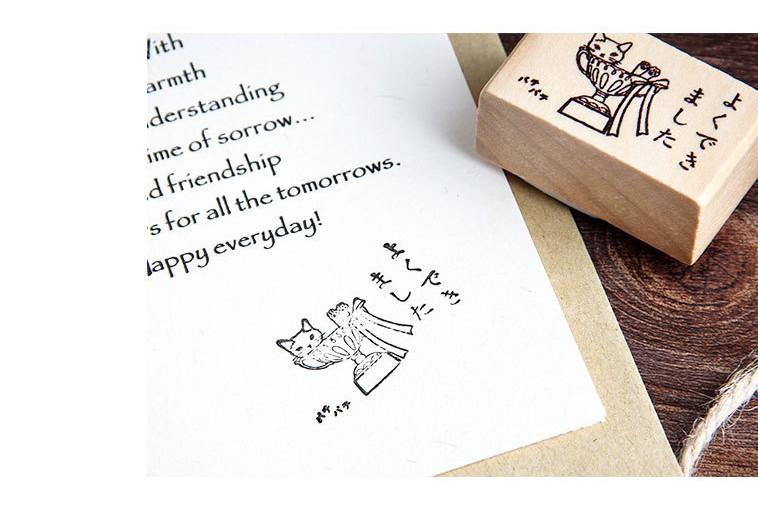 With
armth
derstanding
ime of sorrow...
d friendship
s for all the tomorrows.
Happy everyday!
よくでき
ました
パチ
パチ
よくでき
ました
パチ
パチ